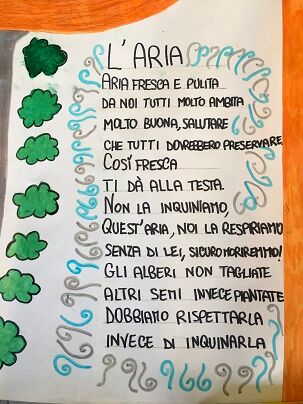 L'ARIA
ARIA FRESCA E PULITA
DA NOI TUTTI MOLTO AMBITA
MOLTO BUONA, SALUTARE
CHE TUTTI DOVREBBERO PRESERVARE
COSÌ FRESCA
TI DÀ ALLA TESTA.
NON LA INQUINIAMO,
QUEST'ARIA, NOI LA RESPIRIAMO
SENZA DI LEI, SICURO MORIREMMO!
GLI ALBERI NON TAGLIATE
ALTRI SEMI INVECE PIANTATE
DOBBIAMO RISPETTARLA
INVECE DI INQUINARLA